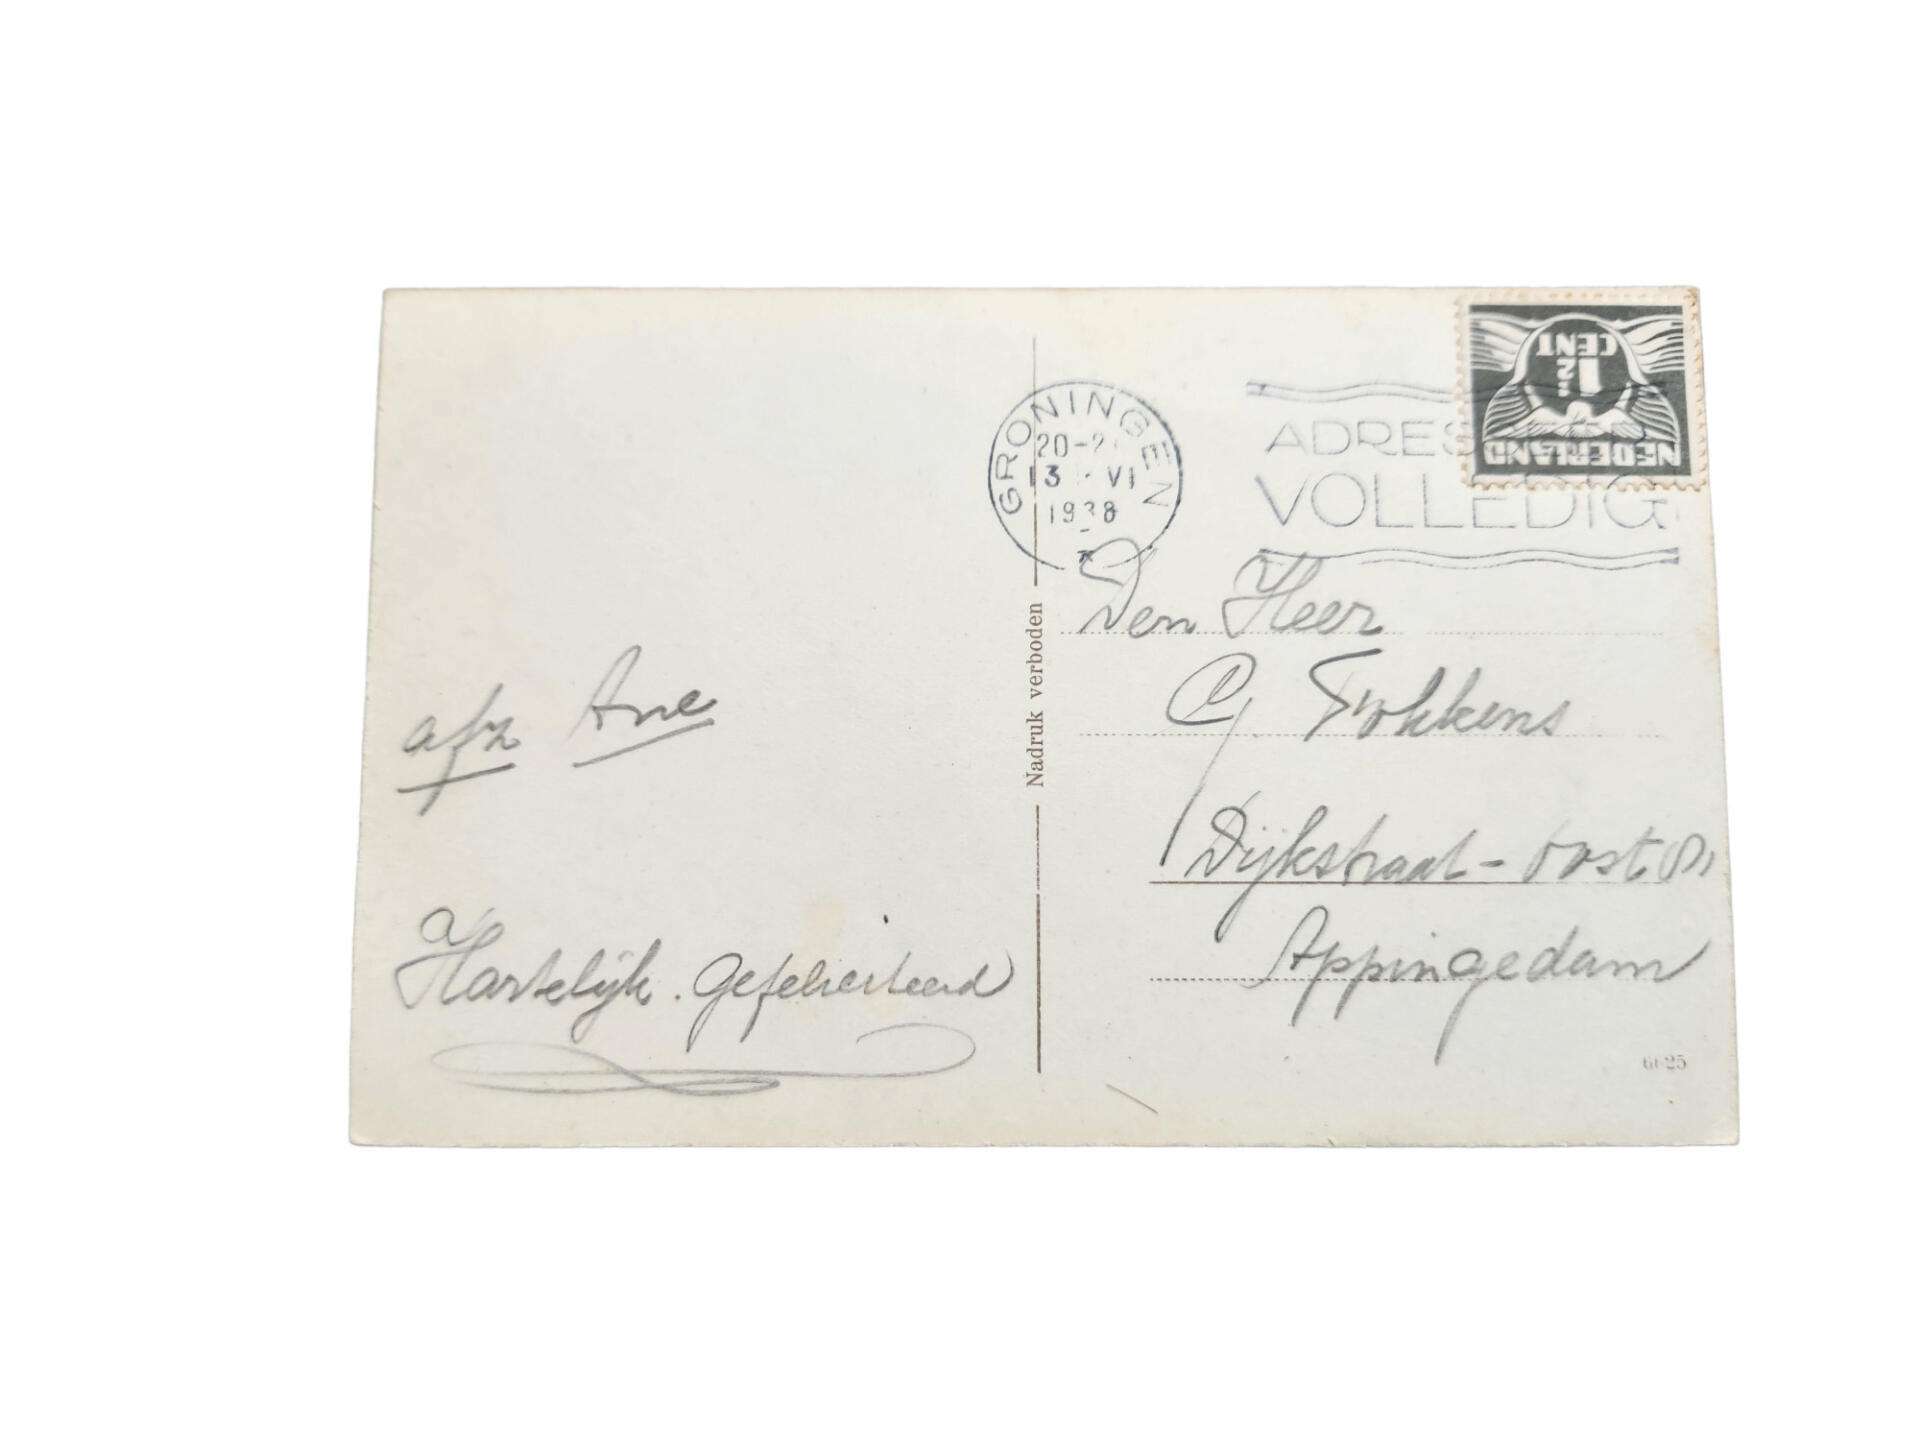 afz Ane
Hartelijk. gefeliciteerd
Nadruk verboden
GRONINGEN
20-2
13 VI
1938
ADRES
VOLLEDIG
NEDERLAND
1½
CENT
Den Heer
G Fokkens
Dijkstraat - oost
Appingedam